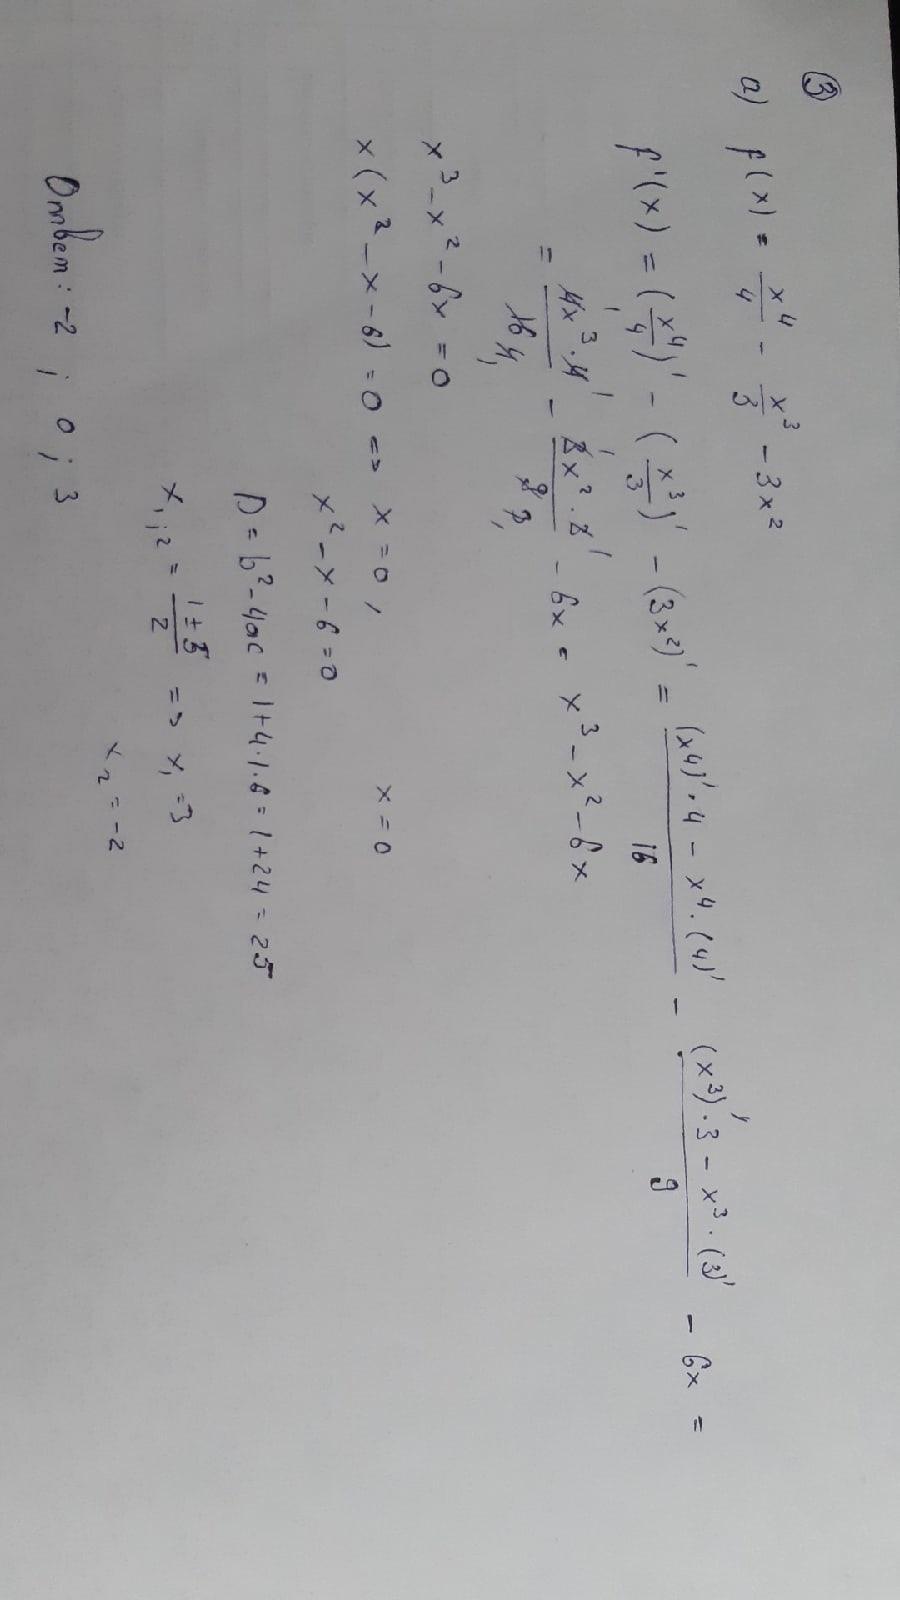 ③
а) f(x) = x⁴/4 - x³/3 - 3x²
f'(x) = (x⁴/4)' - (x³/3)' - (3x²)' = ((x⁴)'·4 - x⁴·(4)')/16 - ((x³)'·3 - x³·(3)')/9 - 6x =
= (4x³·4)/16 - (3x²·3)/9 - 6x = x³ - x² - 6x
x³ - x² - 6x = 0
x(x² - x - 6) = 0 => x = 0, x = 0
x² - x - 6 = 0
D = b² - 4ac = 1+4·1·6 = 1+24 = 25
x₁;₂ = (1±5)/2 => x₁ = 3
x₂ = -2
Ответ: -2 ; 0 ; 3